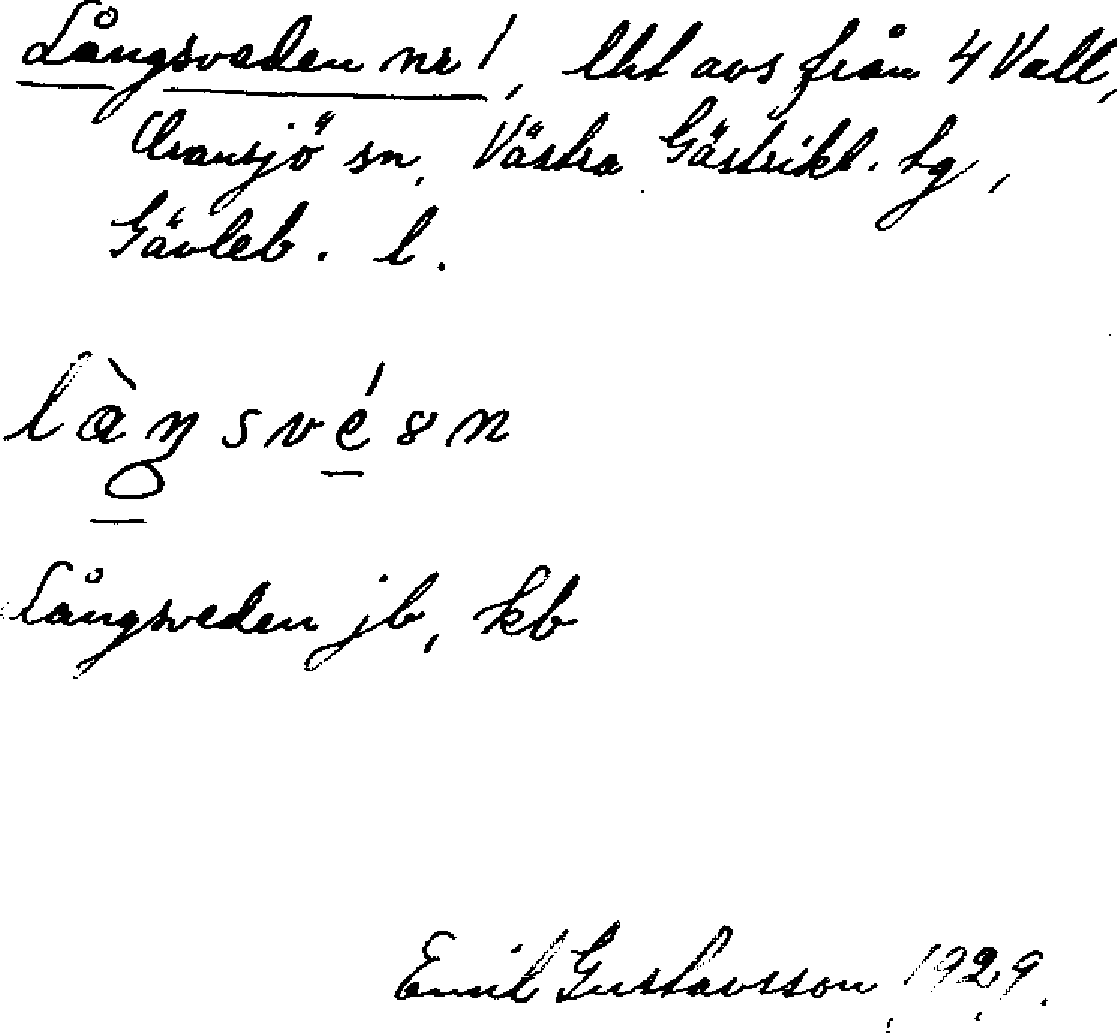 Långsveden nr 1, lht avs från 4 Vall,
Årsunjö sn, Västra Gästrikl. tg,
Gävleb. l.
làŋsvéən
Långsveden jb, kb
Emil Gustavsson, 1929.